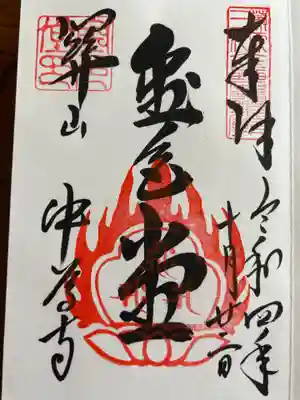 奉拝
令和四年
十月廿二日
金色堂
關山
中尊寺